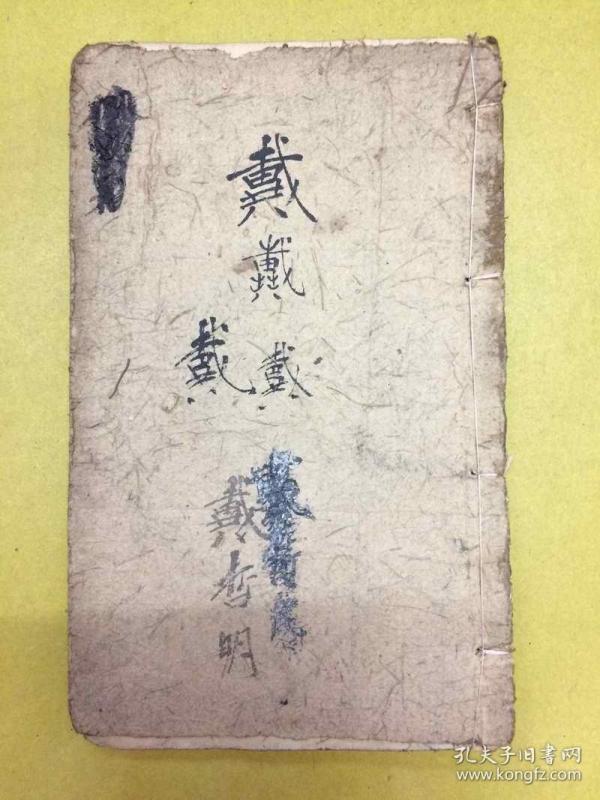 戴
戴
戴戴
戴哲明
孔夫子旧書网
www.kongfz.com